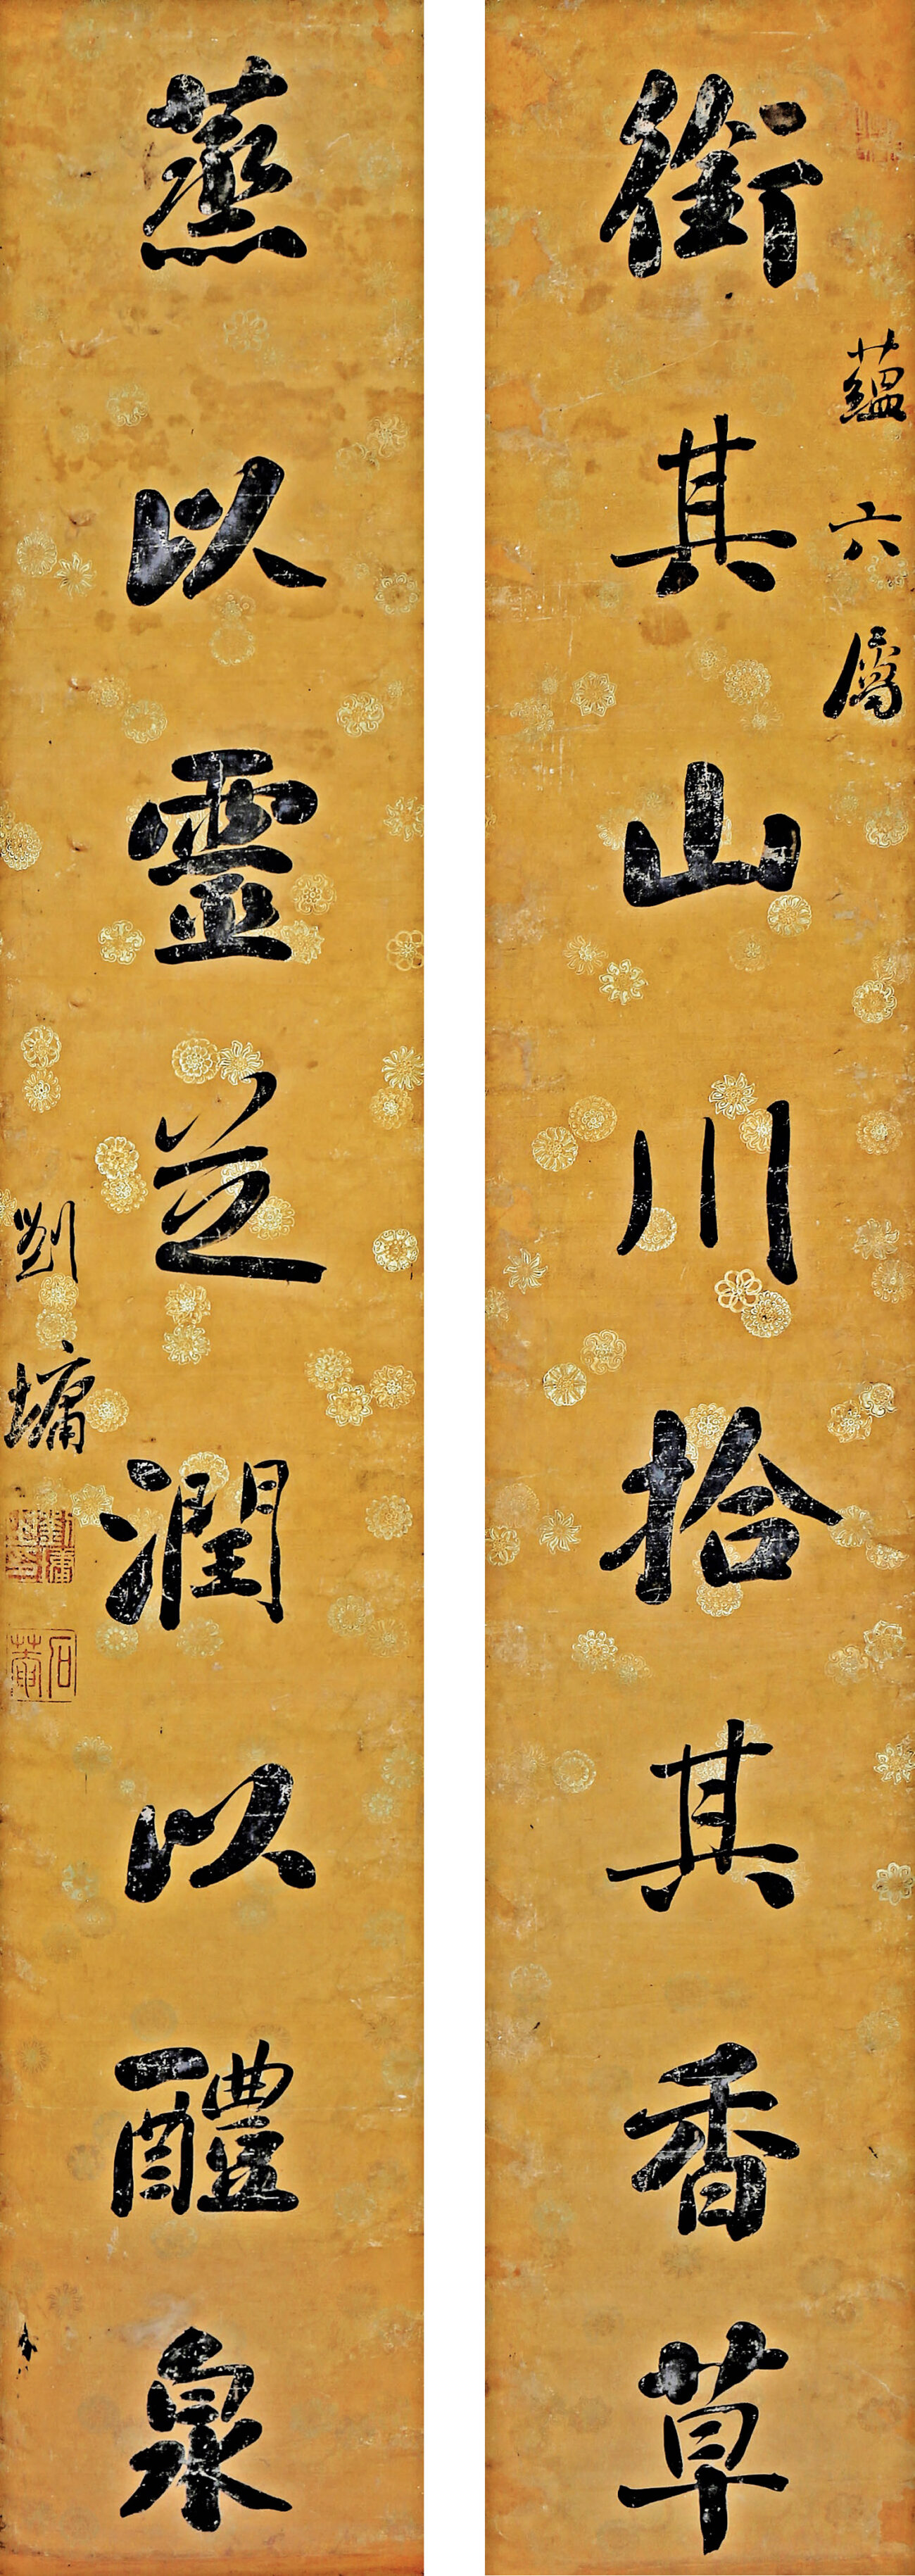 銜其山川拾其香草
蘊六屬
蒸以靈芝潤以醴泉
劉墉
劉墉之印
石菴